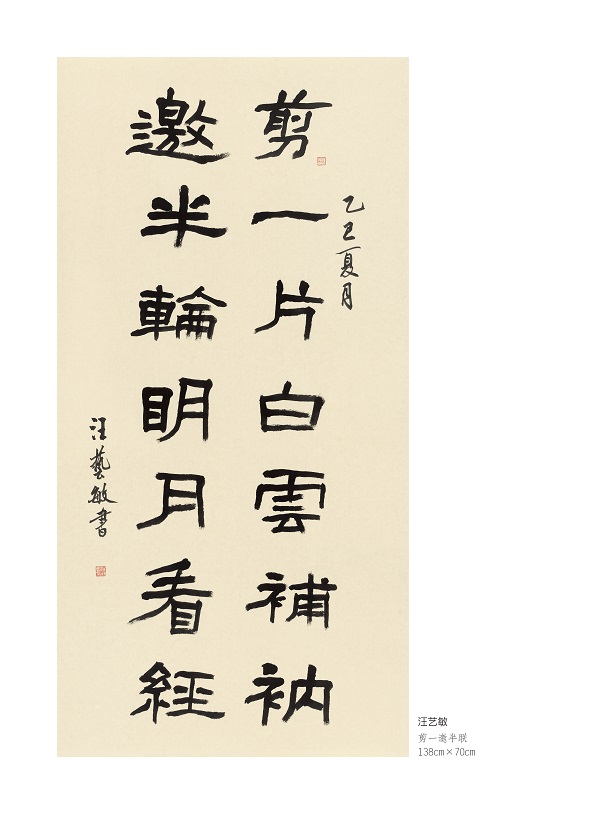 乙巳夏月
剪一片白雲補衲
邀半輪明月看經
汪藝敏書
汪艺敏
剪一邀半联
138cm×70cm